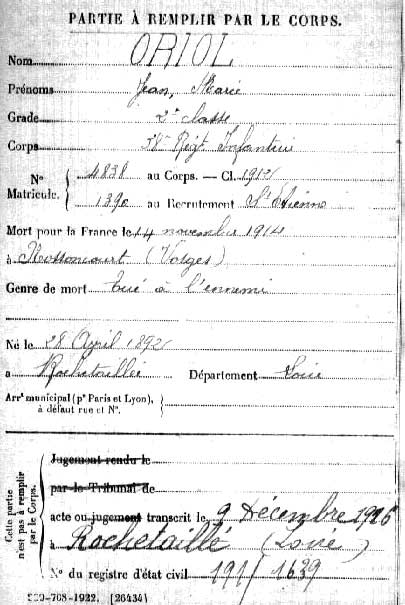 PARTIE À REMPLIR PAR LE CORPS.
Nom ORIOL
Prénoms Jean, Marie
Grade 2e classe
Corps 38me Régt Infanterie
N° Matricule. { 4838 au Corps. — Cl. 1912
1390 au Recrutement St Etienne
Mort pour la France le 14 novembre 1914
à Mossoncourt (Vosges)
Genre de mort Tué à l'ennemi
Né le 28 Avril 1892
à Rochetaillée Département Loire
Arrt municipal (pr Paris et Lyon), à défaut rue et N°.
Cette partie n'est pas à remplir par le Corps.
Jugement rendu le
par le Tribunal de
acte ou jugement transcrit le 9 Décembre 1916
à Rochetaillé (Loire)
N° du registre d'état civil 191/1639
-708-1922. [26434]